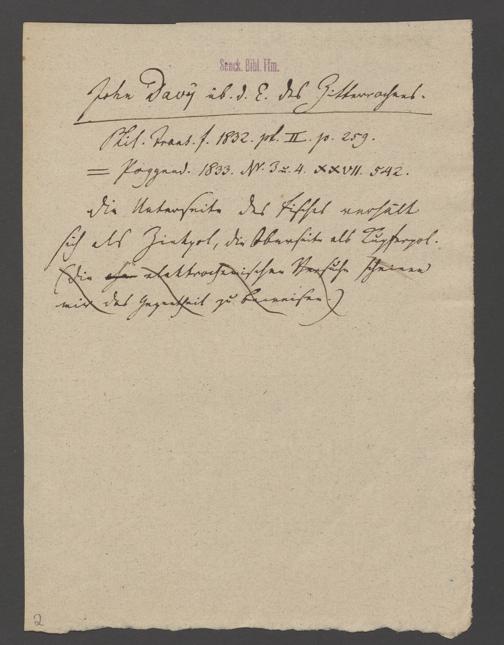 Senck. Bibl. Ffm.
John Davy üb. d. E. des Zitterrochens.
Phil. Trans. f. 1832. pt. II. p. 259.
= Poggend. 1833. Nr. 3 u. 4. XXVII. 542.
die Unterseite des Fisches verhält
sich als Zinkpol, die Oberseite als Kupferpol.
(die elektrochemischen Versuche scheinen
mir das Gegentheil zu beweisen.)
2